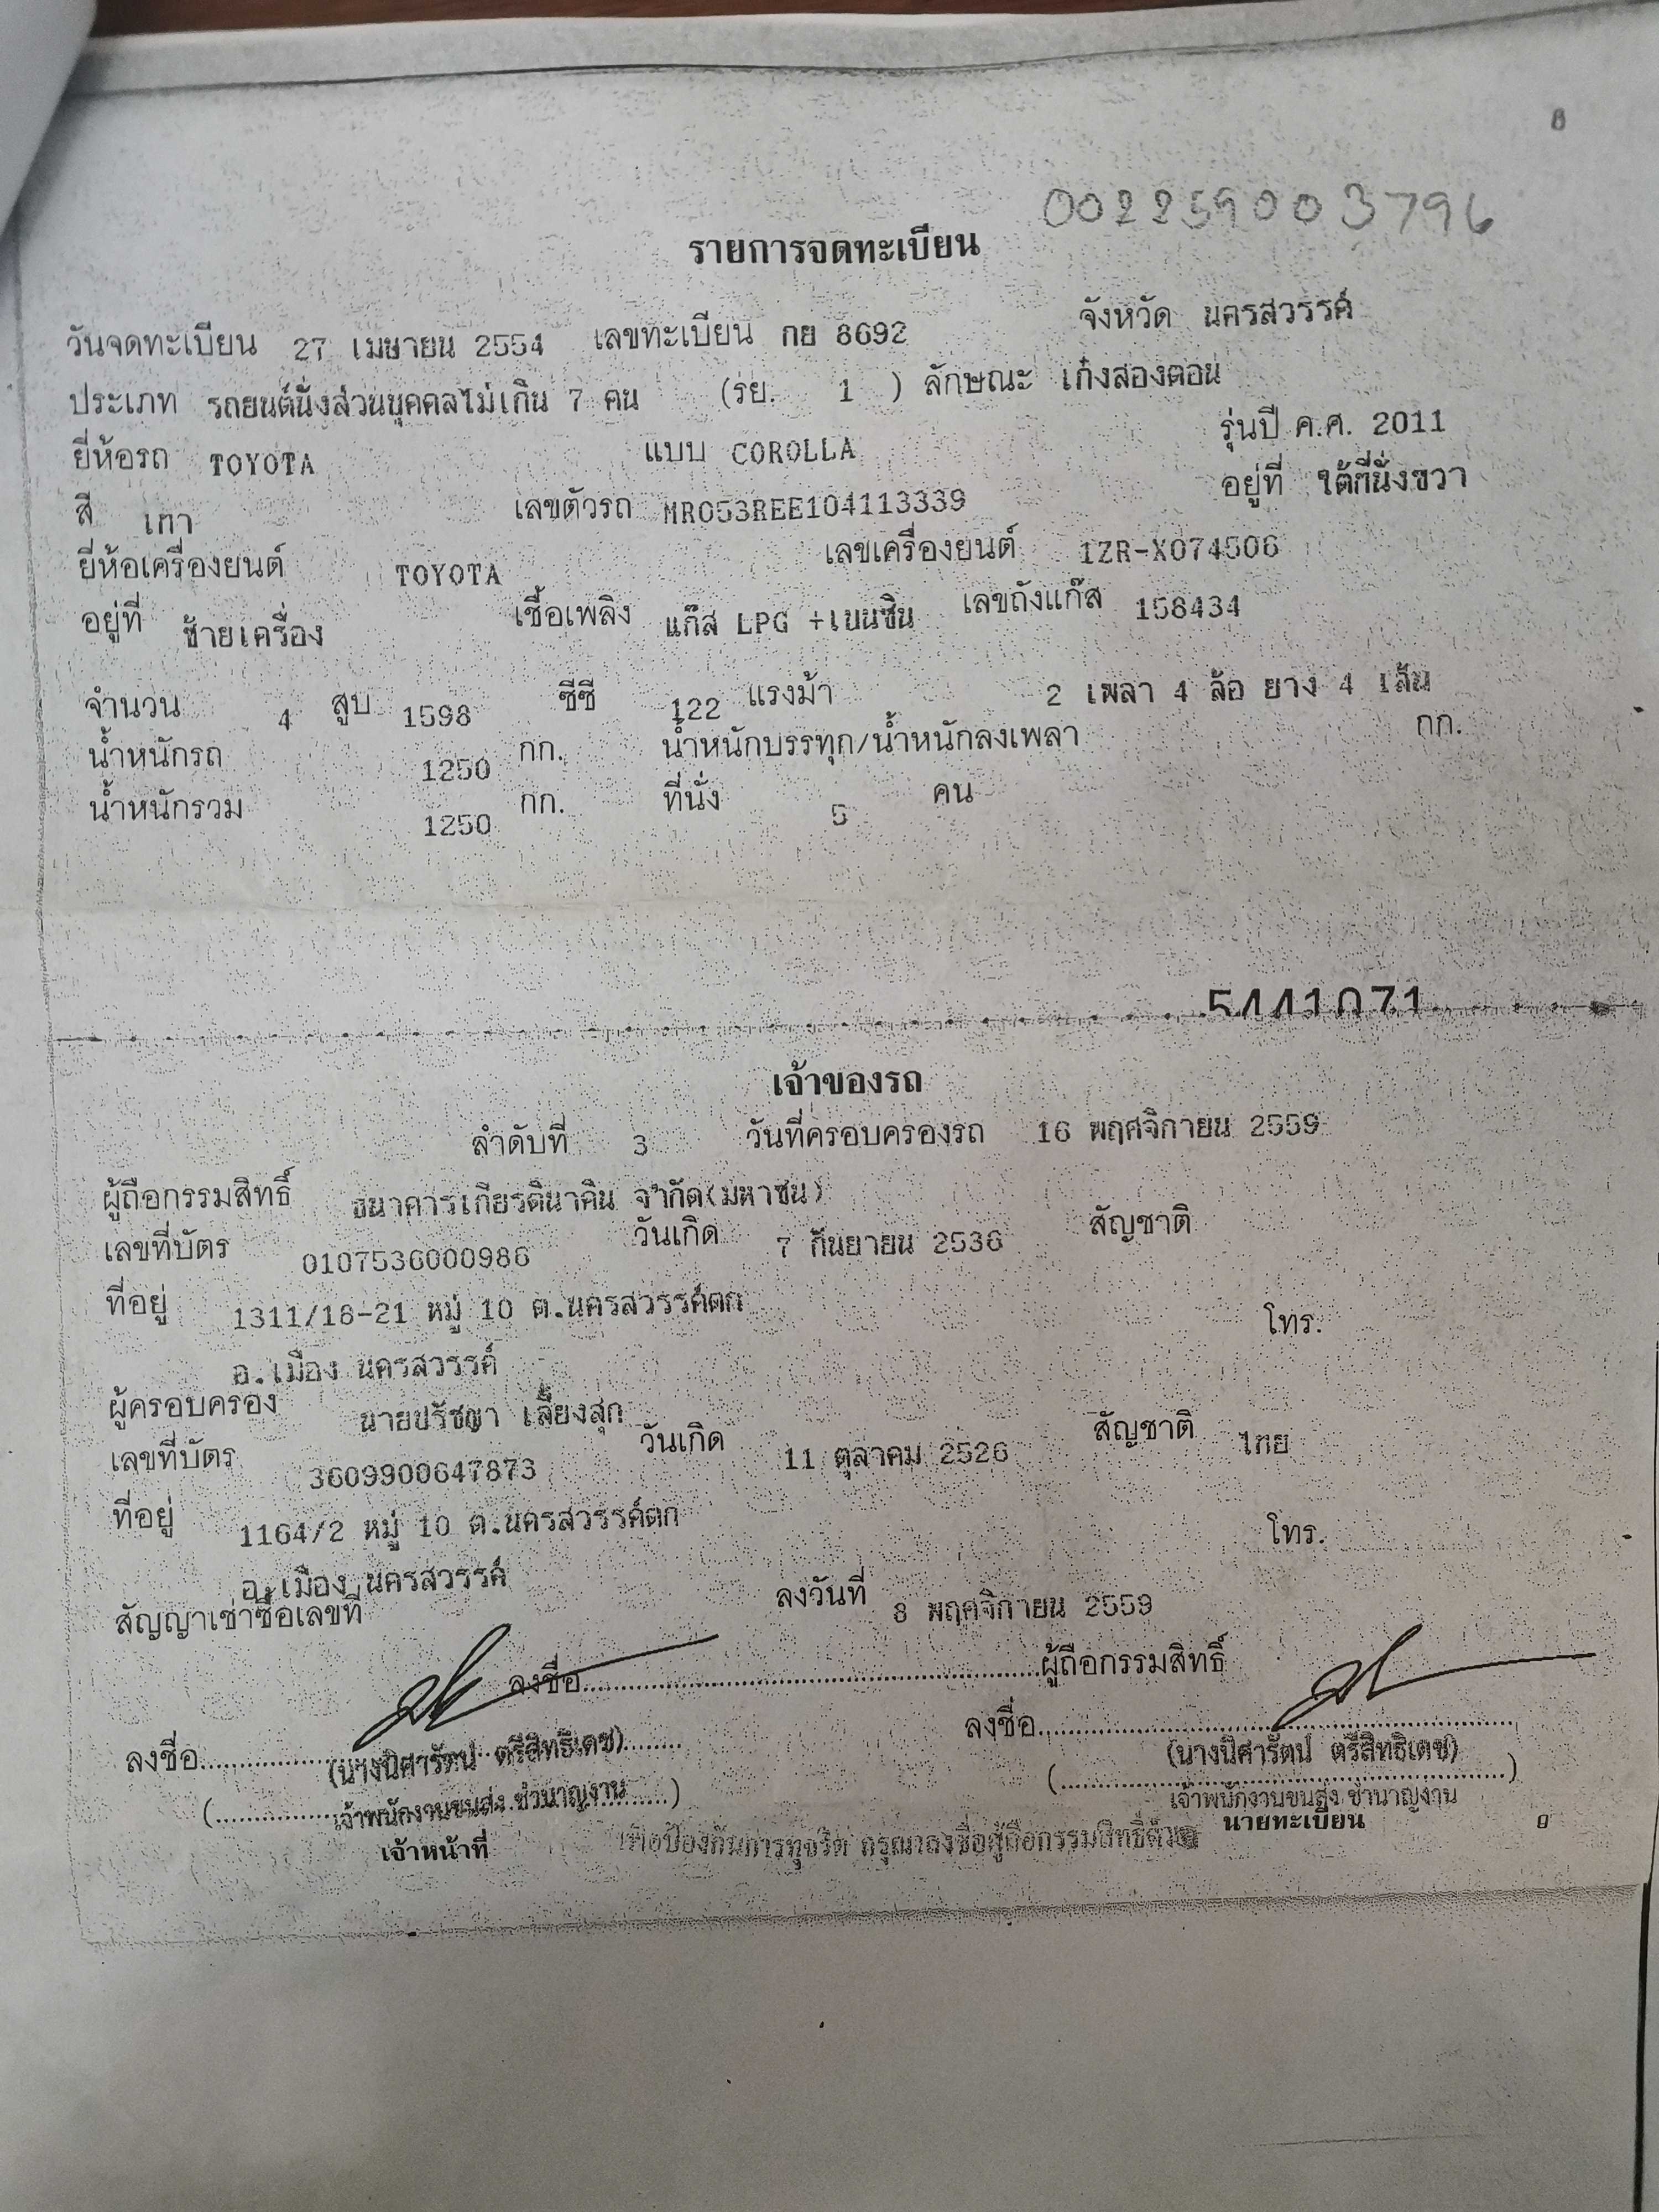 002259003796
รายการจดทะเบียน
วันจดทะเบียน 27 เมษายน 2554 เลขทะเบียน กย 8692 จังหวัด นครสวรรค์
ประเภท รถยนต์นั่งส่วนบุคคลไม่เกิน 7 คน (รย. 1 ) ลักษณะ เก๋งสองตอน
ยี่ห้อรถ TOYOTA แบบ COROLLA รุ่นปี ค.ศ. 2011
สี เทา เลขตัวรถ MR053REE104113339 อยู่ที่ ใต้ที่นั่งขวา
ยี่ห้อเครื่องยนต์ TOYOTA เลขเครื่องยนต์ 1ZR-X074506
อยู่ที่ ซ้ายเครื่อง เชื้อเพลิง แก๊ส LPG +เบนซิน เลขถังแก๊ส 158434
จำนวน 4 สูบ 1598 ซีซี 122 แรงม้า 2 เพลา 4 ล้อ ยาง 4 เส้น
น้ำหนักรถ 1250 กก. น้ำหนักบรรทุก/น้ำหนักลงเพลา กก.
น้ำหนักรวม 1250 กก. ที่นั่ง 5 คน
5441071
เจ้าของรถ
ลำดับที่ 3 วันที่ครอบครองรถ 16 พฤศจิกายน 2559
ผู้ถือกรรมสิทธิ์ ธนาคารเกียรตินาคิน จำกัด(มหาชน)
เลขที่บัตร 0107536000986 วันเกิด 7 กันยายน 2536 สัญชาติ
ที่อยู่ 1311/18-21 หมู่ 10 ต.นครสวรรค์ตก โทร.
อ.เมือง นครสวรรค์
ผู้ครอบครอง นายปรัชญา เลี้ยงสุก
เลขที่บัตร 3609900647873 วันเกิด 11 ตุลาคม 2526 สัญชาติ ไทย
ที่อยู่ 1164/2 หมู่ 10 ต.นครสวรรค์ตก โทร.
อ.เมือง นครสวรรค์
สัญญาเช่าซื้อเลขที่ ลงวันที่ 8 พฤศจิกายน 2559
ลงชื่อ ผู้ถือกรรมสิทธิ์
ลงชื่อ ลงชื่อ
(นางนิศารัตน์ ตรีสิทธิเดช) (นางนิศารัตน์ ตรีสิทธิเดช)
เจ้าพนักงานขนส่ง ชำนาญงาน เจ้าพนักงานขนส่ง ชำนาญงาน
เจ้าหน้าที่ นายทะเบียน
เพื่อป้องกันการทุจริต กรุณาลงชื่อผู้ถือกรรมสิทธิ์ด้วย